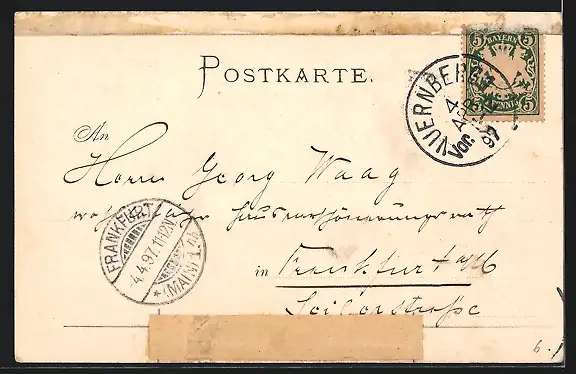 POSTKARTE.
BAYERN
5 5
PFENNIG
5 5
NUERNBERG
4 APR
Vor.
97
An
Herrn Georg Waag
in Frankfurt a/M
Seilerstraße
FRANKFURT
4.4.97. 11-12 N.
* (MAIN) 1. g.
6.-